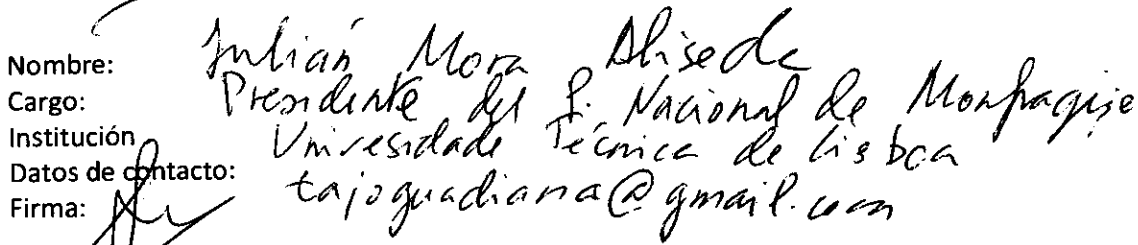 Nombre: Julián Mora Aliseda
Cargo: Presidente del P. Nacional de Monfragüe
Institución Universidade Técnica de Lisboa
Datos de contacto: tajoguadiana@gmail.com
Firma: